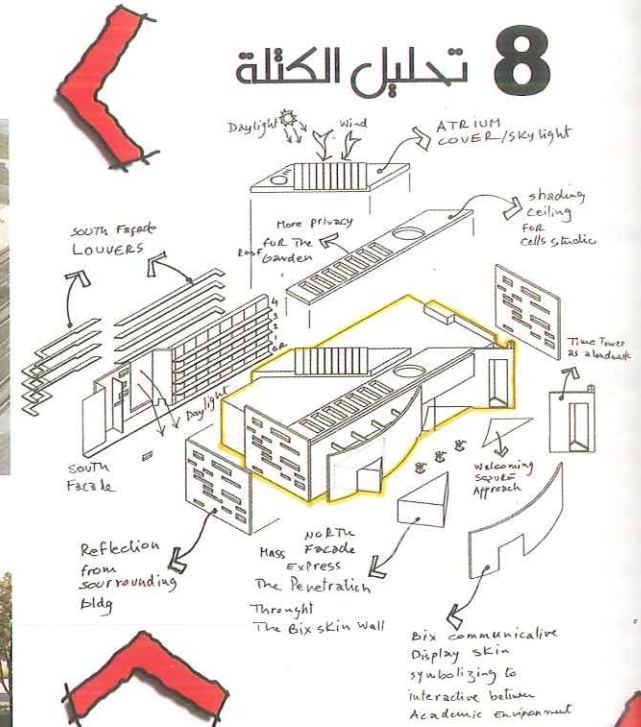 8 تحليل الكتلة
Daylight
Wind
ATRIUM
COVER/SKYlight
shading
Ceiling
FOR
Cells studio
More privacy
FOR The
Garden
Roof
SOUTH Façade
LOUVERS
4
3
2
1
GR.
Time Tower
as a landmark
Daylight
South
Facade
Welcoming
SQUARE
Approach
Reflection
from
sourrounding
bldg
NORTH
Mass Facade
Express
The Penetration
Throught
The Bix skin Wall
Bix communicative
Display skin
symbolizing to
interactive between
Academic environment